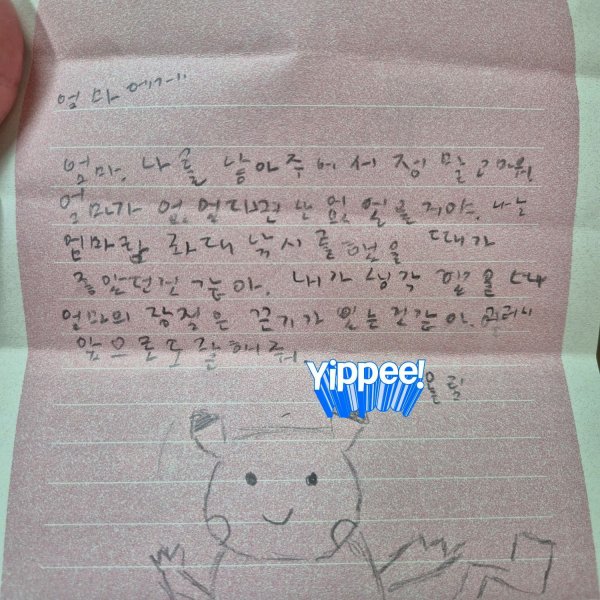 엄마에게
엄마. 나를 낳아주어서 정말 고마워.
엄마가 없었다면 난 없었을 거야. 나는
엄마랑 바다 낚시를 했을 때가
좋았던것 같아. 내가 생각 했을 때
엄마의 장점은 끈기가 있는것 같아.
앞으로도 잘해줘
Yippee!
올림